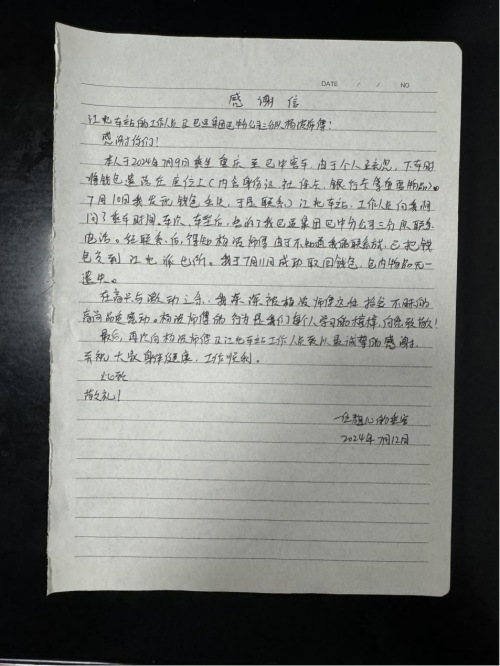 DATE / / NO
感谢信
江北车站的工作人员及巴运集团巴中分公司三分队杨波师傅！
感谢你们！
本人于2024年7月9日乘坐重庆至巴中客车，由于个人疏忽，下车时
将钱包遗落在座位上（内含身份证、社保卡、银行卡等重要物品）。
7月10日我发现钱包丢失，于是联系了江北车站，工作人员向我询
问了乘车时间、车次、车型后，告诉了我巴运集团巴中分公司三分队联系
电话。经联系后，得知杨波师傅由于不知道我的联系方式，已把钱
包交到江北派出所。我于7月11日成功取回钱包，包内物品无一
遗失。
在高兴与激动之余，我深深被杨波师傅这种拾金不昧的
高尚品德感动。杨波师傅的行为是我们每个人学习的榜样，向您致敬！
最后，再次向杨波师傅及江北车站工作人员致以最诚挚的感谢，
并祝大家身体健康，工作顺利。
此致
敬礼！
一位粗心的乘客
2024年7月12日